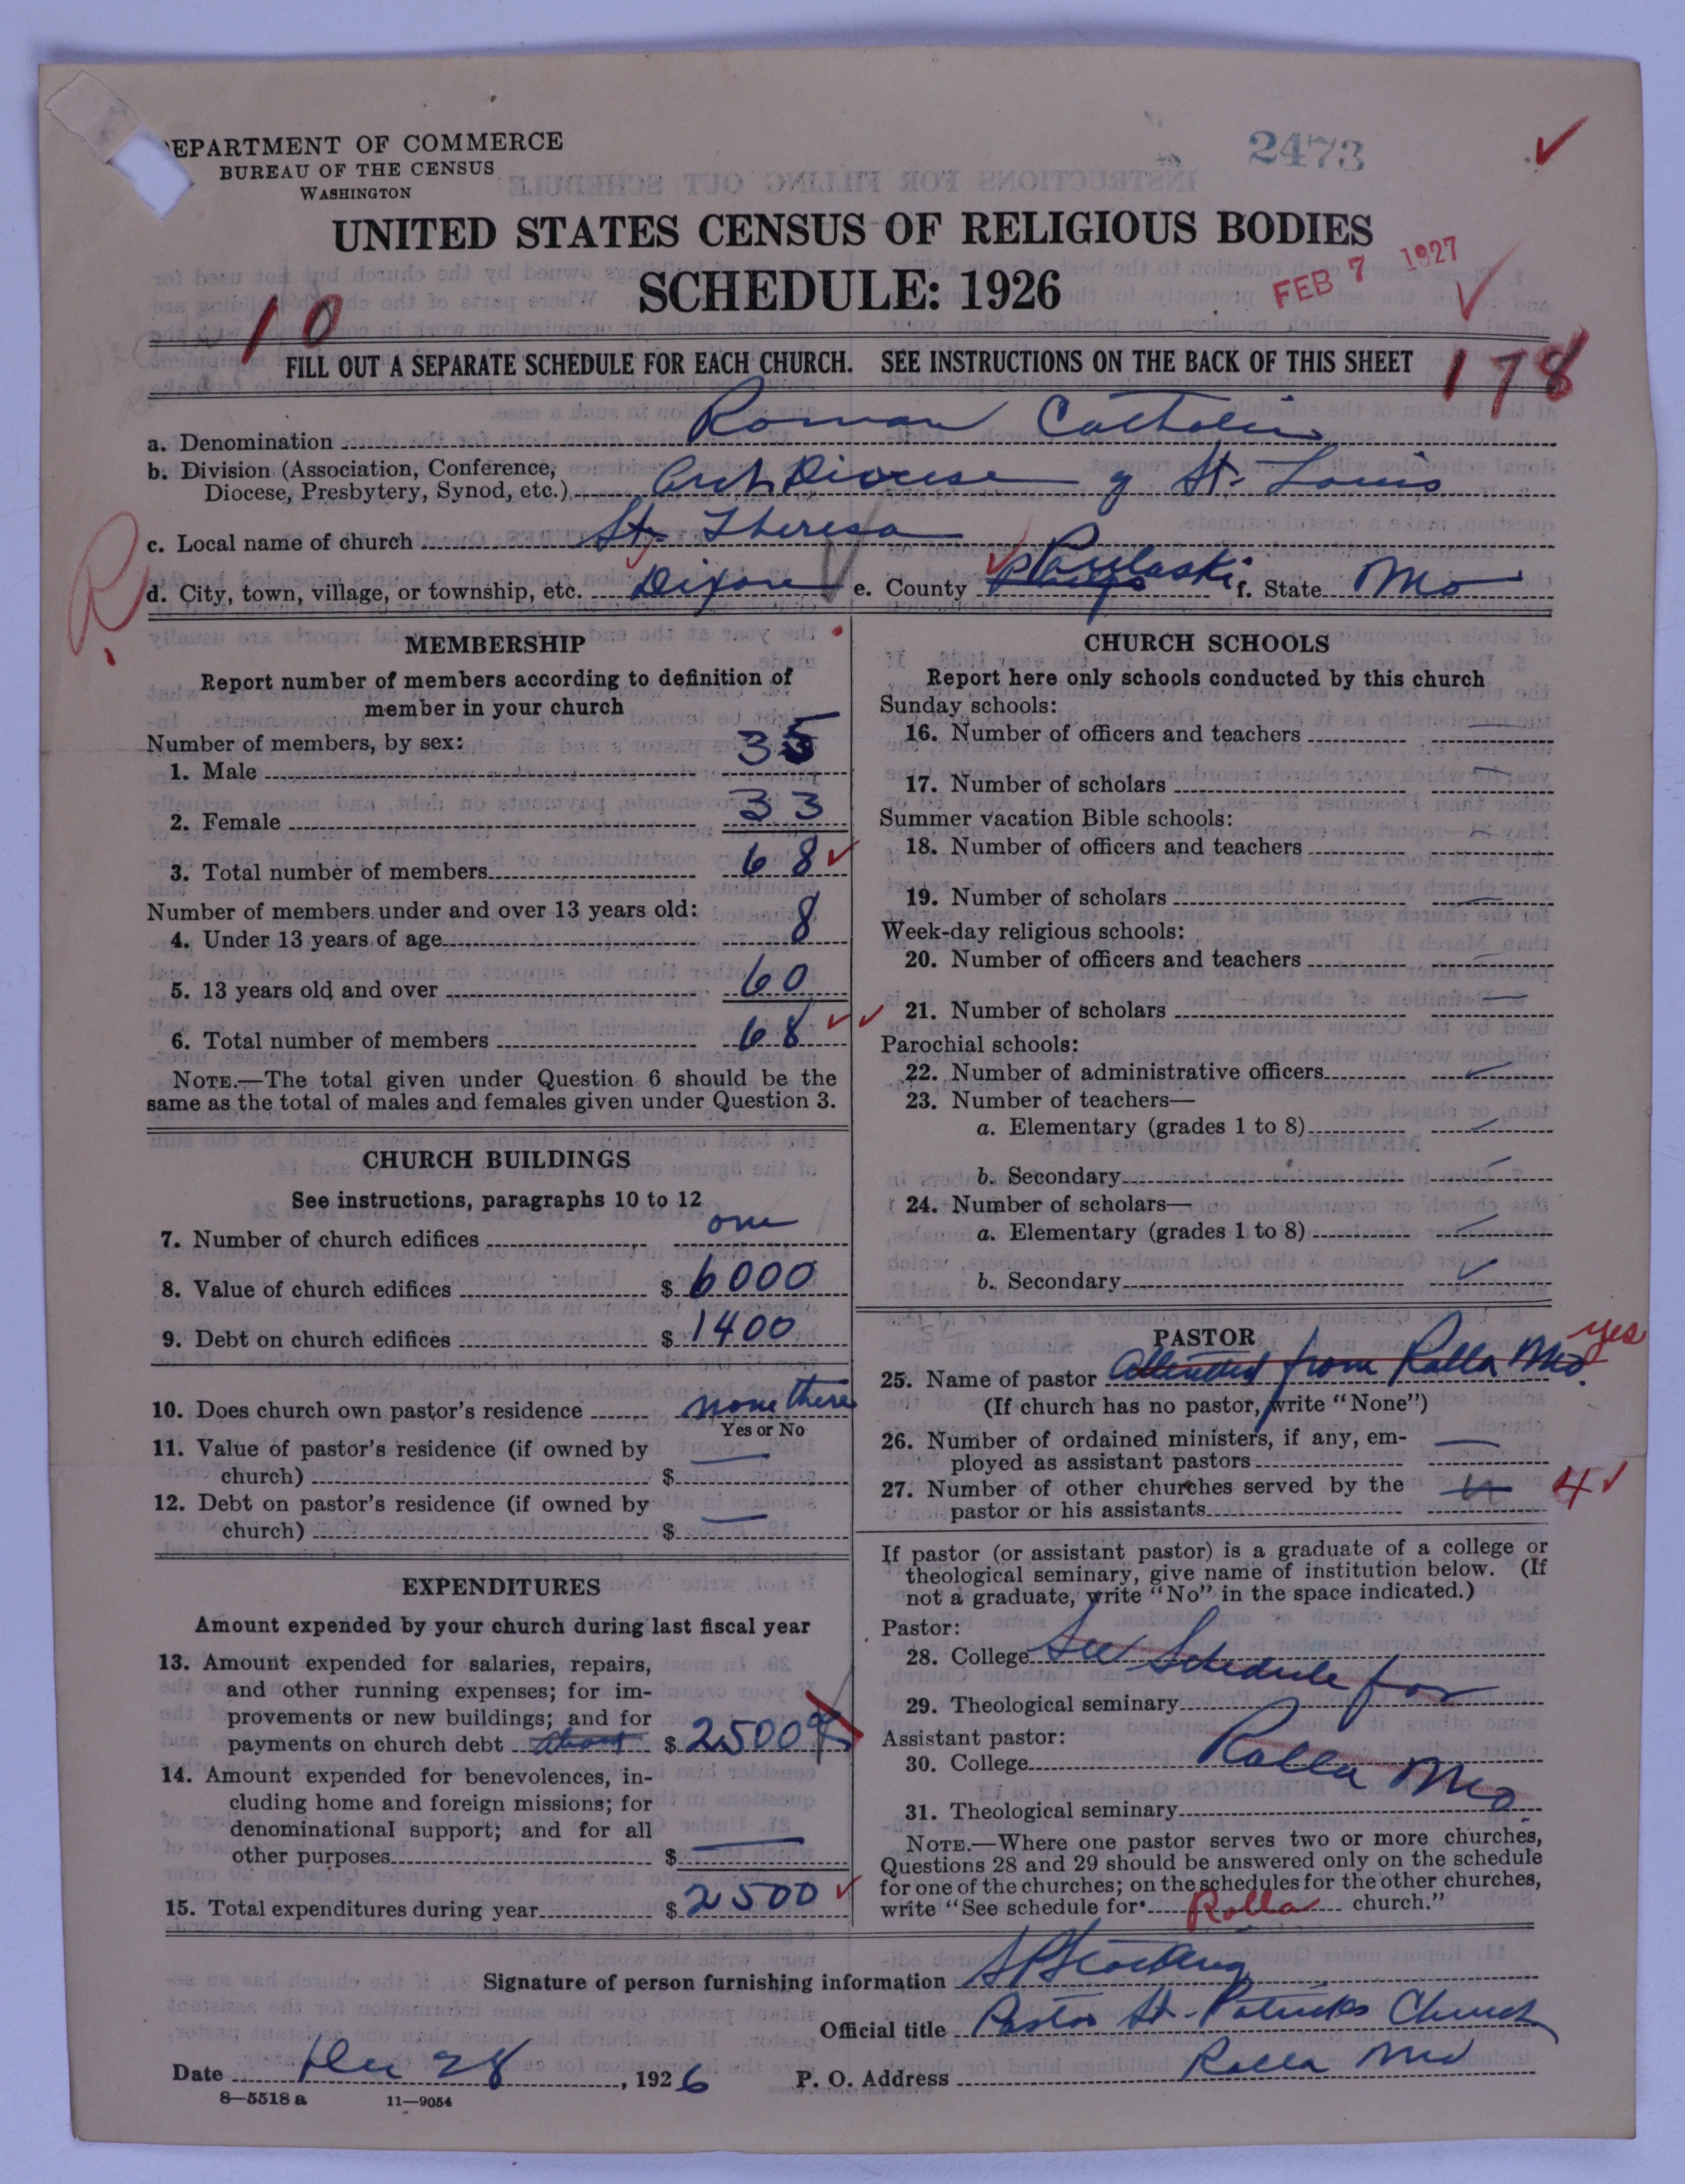 DEPARTMENT OF COMMERCE
BUREAU OF THE CENSUS
WASHINGTON
2473
UNITED STATES CENSUS OF RELIGIOUS BODIES
SCHEDULE: 1926
FEB 7 1927
10
FILL OUT A SEPARATE SCHEDULE FOR EACH CHURCH. SEE INSTRUCTIONS ON THE BACK OF THIS SHEET
178
a. Denomination Roman Catholic
b. Division (Association, Conference, Diocese, Presbytery, Synod, etc.) Arch Diocese of St. Louis
c. Local name of church St. Theresa
R
d. City, town, village, or township, etc. Dixon e. County Pulaski f. State Mo
MEMBERSHIP
Report number of members according to definition of
member in your church
Number of members, by sex:
1. Male 35
2. Female 33
3. Total number of members 68
Number of members under and over 13 years old:
4. Under 13 years of age 8
5. 13 years old and over 60
6. Total number of members 68
NOTE.—The total given under Question 6 should be the
same as the total of males and females given under Question 3.
CHURCH BUILDINGS
See instructions, paragraphs 10 to 12
7. Number of church edifices one
8. Value of church edifices $ 6000
9. Debt on church edifices $ 1400
10. Does church own pastor's residence none there
Yes or No
11. Value of pastor's residence (if owned by
church) $ —
12. Debt on pastor's residence (if owned by
church) $ —
EXPENDITURES
Amount expended by your church during last fiscal year
13. Amount expended for salaries, repairs,
and other running expenses; for im-
provements or new buildings; and for
payments on church debt about $ 2500
14. Amount expended for benevolences, in-
cluding home and foreign missions; for
denominational support; and for all
other purposes $ —
15. Total expenditures during year $ 2500
CHURCH SCHOOLS
Report here only schools conducted by this church
Sunday schools:
16. Number of officers and teachers —
17. Number of scholars —
Summer vacation Bible schools:
18. Number of officers and teachers —
19. Number of scholars —
Week-day religious schools:
20. Number of officers and teachers —
21. Number of scholars —
Parochial schools:
22. Number of administrative officers —
23. Number of teachers—
a. Elementary (grades 1 to 8) —
b. Secondary —
24. Number of scholars—
a. Elementary (grades 1 to 8) —
b. Secondary —
PASTOR
yes
25. Name of pastor Attended from Rolla Mo.
(If church has no pastor, write "None")
26. Number of ordained ministers, if any, em-
ployed as assistant pastors —
27. Number of other churches served by the
pastor or his assistants 4
If pastor (or assistant pastor) is a graduate of a college or
theological seminary, give name of institution below. (If
not a graduate, write "No" in the space indicated.)
Pastor:
28. College See Schedule for
29. Theological seminary
Assistant pastor:
30. College Rolla Mo.
31. Theological seminary
NOTE.—Where one pastor serves two or more churches,
Questions 28 and 29 should be answered only on the schedule
for one of the churches; on the schedules for the other churches,
write "See schedule for Rolla church."
Signature of person furnishing information
Official title Pastor St. Patricks Church
Date Dec 28, 1926 P. O. Address Rolla Mo
8—5518 a 11—9054